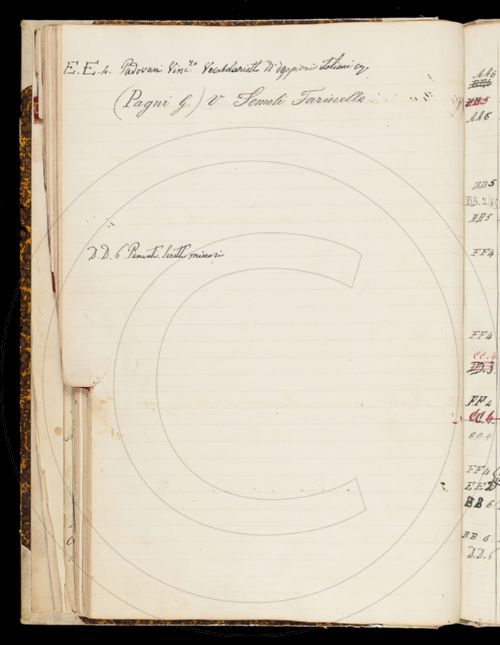 E.E.4. Padovan Vinc.zo Vocabolarietto di doppioni italiani
(Pagni G.) V Semoli Farinello
D.D. 6 Parenti. Scritti minori
AA6
AA6
BD5
BB.2
FF4
FF4
CC.4
DD.3
FF4
CC4
FF4
EE2
BB 6
BB 6
D.D.